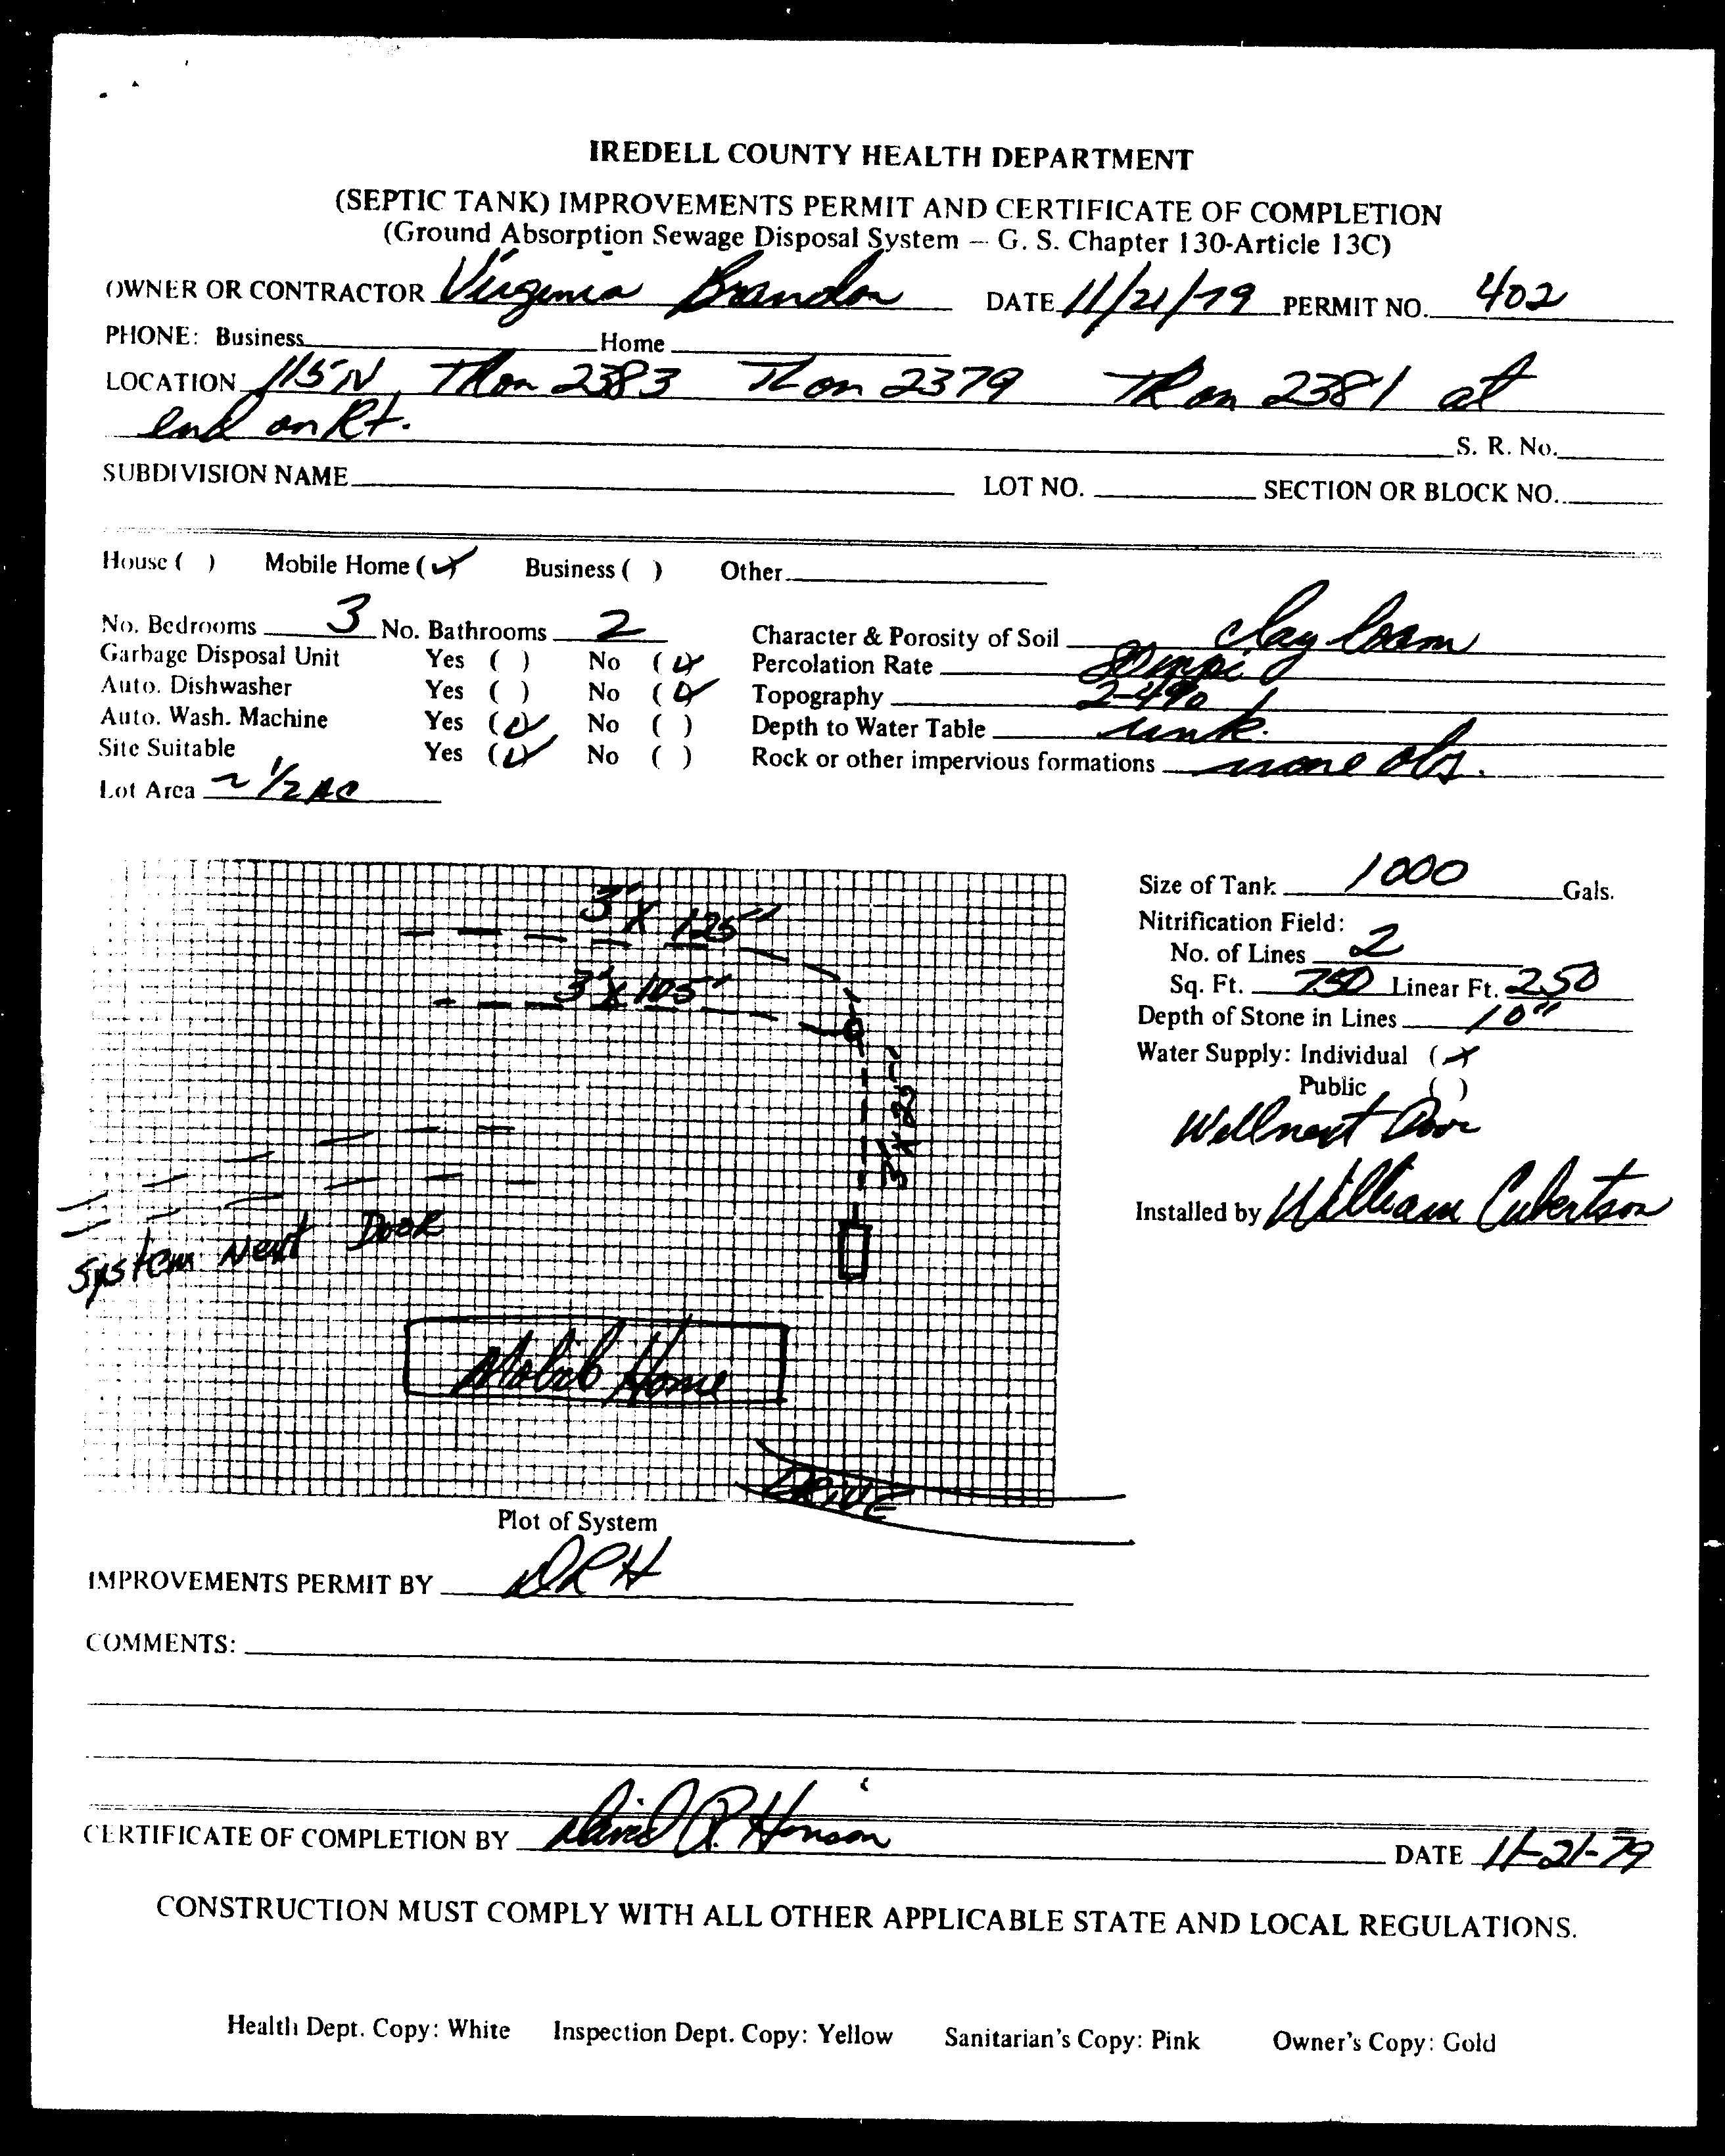 IREDELL COUNTY HEALTH DEPARTMENT
(SEPTIC TANK) IMPROVEMENTS PERMIT AND CERTIFICATE OF COMPLETION
(Ground Absorption Sewage Disposal System – G. S. Chapter 130-Article 13C)
OWNER OR CONTRACTOR Virginia Brandon DATE 11/21/79 PERMIT NO. 402
PHONE: Business Home
LOCATION 115 N TR on 2383 TL on 2379 TR on 2381 at
end on Rt. S. R. No.
SUBDIVISION NAME LOT NO. SECTION OR BLOCK NO.
House ( ) Mobile Home (✓) Business ( ) Other
No. Bedrooms 3 No. Bathrooms 2 Character & Porosity of Soil clay loam
Garbage Disposal Unit Yes ( ) No (✓) Percolation Rate mpi
Auto. Dishwasher Yes ( ) No (✓) Topography 2-4%
Auto. Wash. Machine Yes (✓) No ( ) Depth to Water Table unk.
Site Suitable Yes (✓) No ( ) Rock or other impervious formations none obs.
Lot Area ~ 1/2 AC
Size of Tank 1000 Gals.
Nitrification Field:
No. of Lines 2
Sq. Ft. 750 Linear Ft. 250
Depth of Stone in Lines 10"
Water Supply: Individual (✓)
Public ( )
Well next Door
Installed by William Culbertson
3' x 125'
3' x 105'
3' x 25'
System Next Door
Mobile Home
DRIVE
Plot of System
IMPROVEMENTS PERMIT BY DRH
COMMENTS:
CERTIFICATE OF COMPLETION BY David R. Hinson DATE 11-21-79
CONSTRUCTION MUST COMPLY WITH ALL OTHER APPLICABLE STATE AND LOCAL REGULATIONS.
Health Dept. Copy: White Inspection Dept. Copy: Yellow Sanitarian's Copy: Pink Owner's Copy: Gold